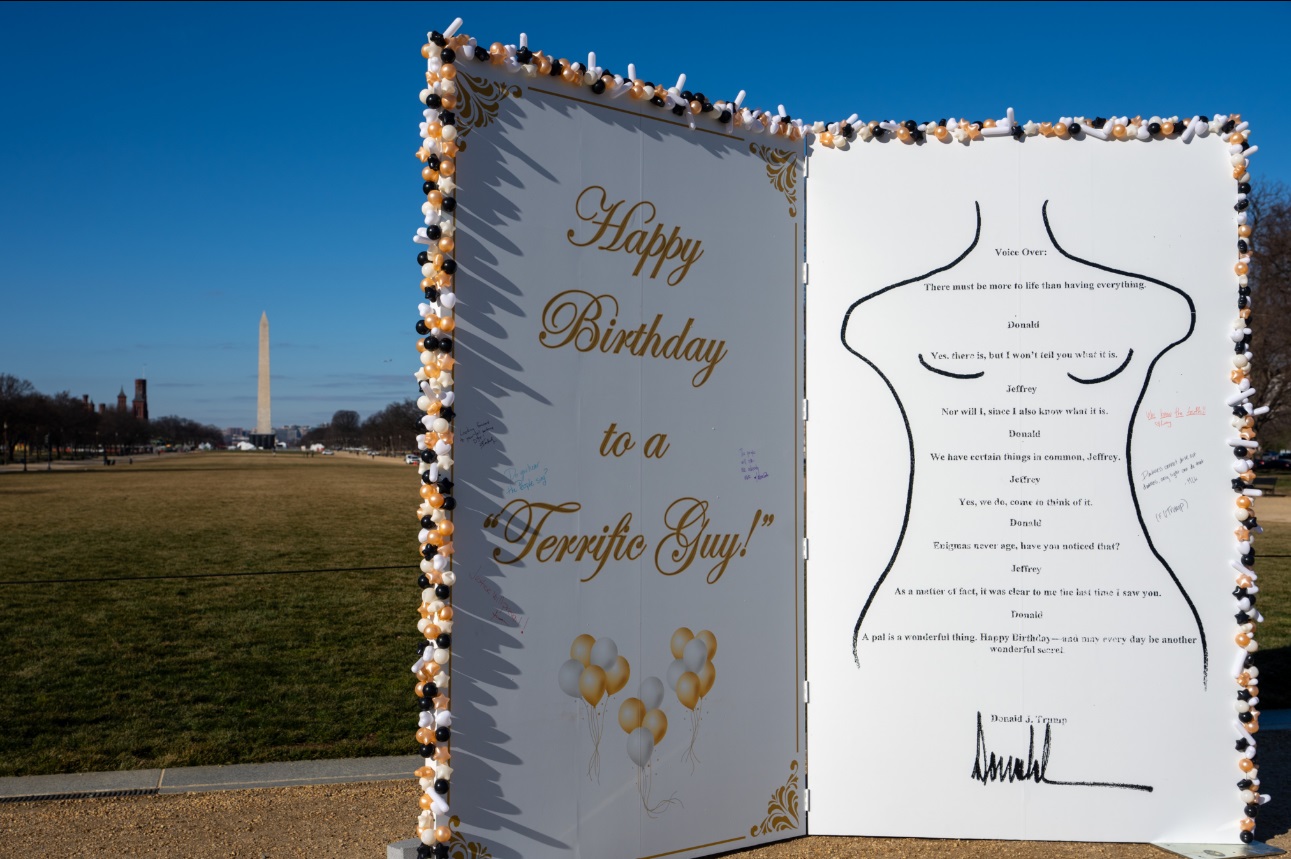 Happy
Birthday
to a
“Terrific Guy!”
Voice Over:
There must be more to life than having everything.
Donald
Yes, there is, but I won't tell you what it is.
Jeffrey
Nor will I, since I also know what it is.
Donald
We have certain things in common, Jeffrey.
Jeffrey
Yes, we do, come to think of it.
Donald
Enigmas never age, have you noticed that?
Jeffrey
As a matter of fact, it was clear to me the last time I saw you.
Donald
A pal is a wonderful thing. Happy Birthday—and may every day be another
wonderful secret.
Donald J. Trump
Donald